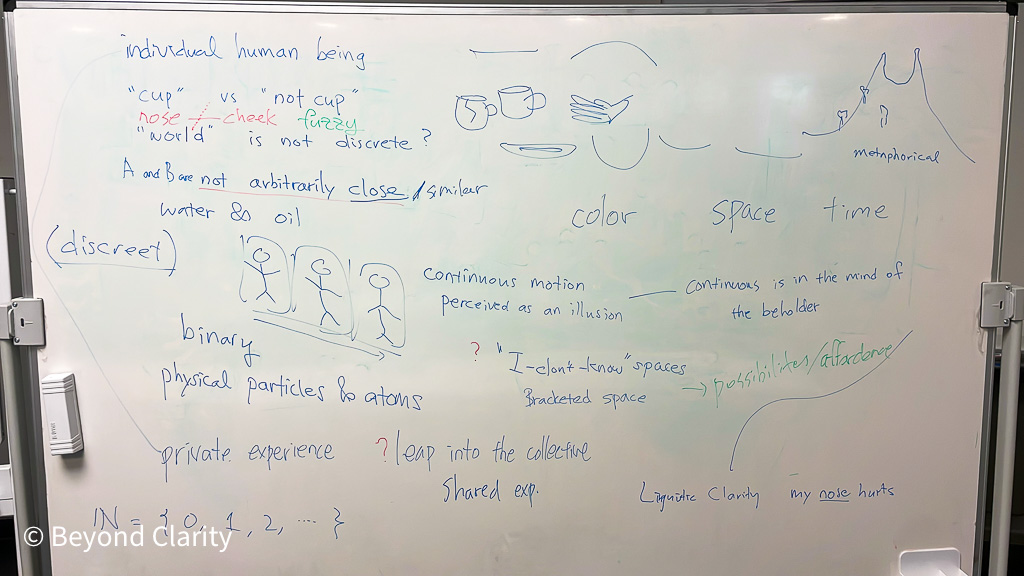 individual human being
"cup" vs "not cup"
nose cheek fuzzy
"world" is not discrete ?
A and B are not arbitrarily close / similar
water & oil
(discreet)
binary
physical particles & atoms
private experience
ℕ = { 0, 1, 2, .... }
metaphorical
color space time
continuous motion
perceived as an illusion
continuous is in the mind of
the beholder
? "I-dont-know" spaces
Bracketed space
→ possibilities/affordance
? leap into the collective
shared exp.
Linguistic Clarity my nose hurts
© Beyond Clarity